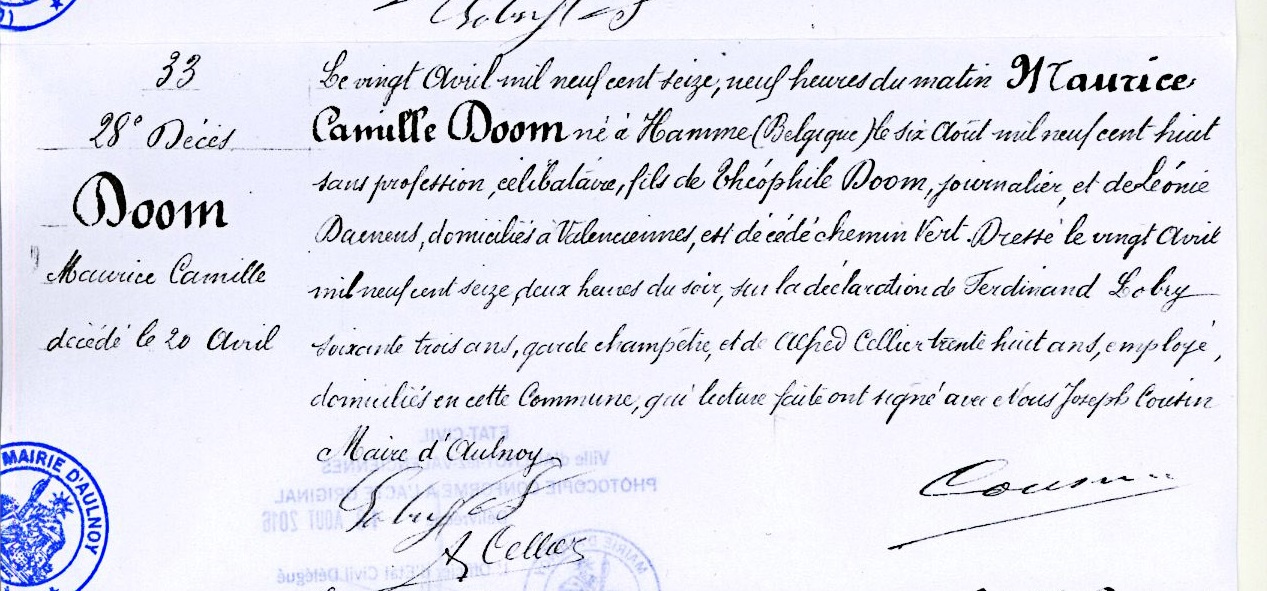 33
28e Décès
Doom
Maurice Camille
décédé le 20 Avril
Le vingt Avril mil neuf cent seize, neuf heures du matin Maurice
Camille Doom né à Hamme (Belgique) le six Août mil neuf cent huit
sans profession, célibataire, fils de Théophile Doom, journalier, et de Léonie
Daenens, domiciliés à Valenciennes, est décédé chemin Vert. Dressé le vingt Avril
mil neuf cent seize, deux heures du soir, sur la déclaration de Ferdinand Lobry
soixante trois ans, garde champêtre, et de Alfred Cellier trente huit ans, employé,
domiciliés en cette Commune, qui lecture faite ont signé avec Nous Joseph Cousin
Maire d'Aulnoy.
Lobry F
A Cellier
Cousin
MAIRIE D'AULNOY
ETAT-CIVIL
PHOTOCOPIE CONFORME A L'ACTE ORIGINAL
AOUT 2016
L'Officier d'Etat Civil Délégué
MAIRIE D